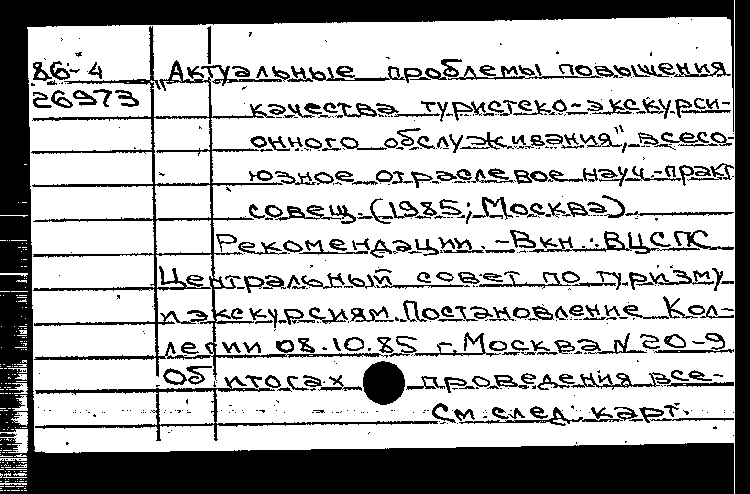 86-4 "Актуальные проблемы повышения
26973 качества туристско-экскурси-
онного обслуживания", всесо-
юзное отраслевое науч.-практ
совещ. (1985; Москва).
Рекомендации. - Вкн.: ВЦСПС
Центральный совет по туризму
и экскурсиям. Постановление Кол-
легии 08.10.85 г. Москва N 20-9
Об итогах проведения все-
См. след. карт.